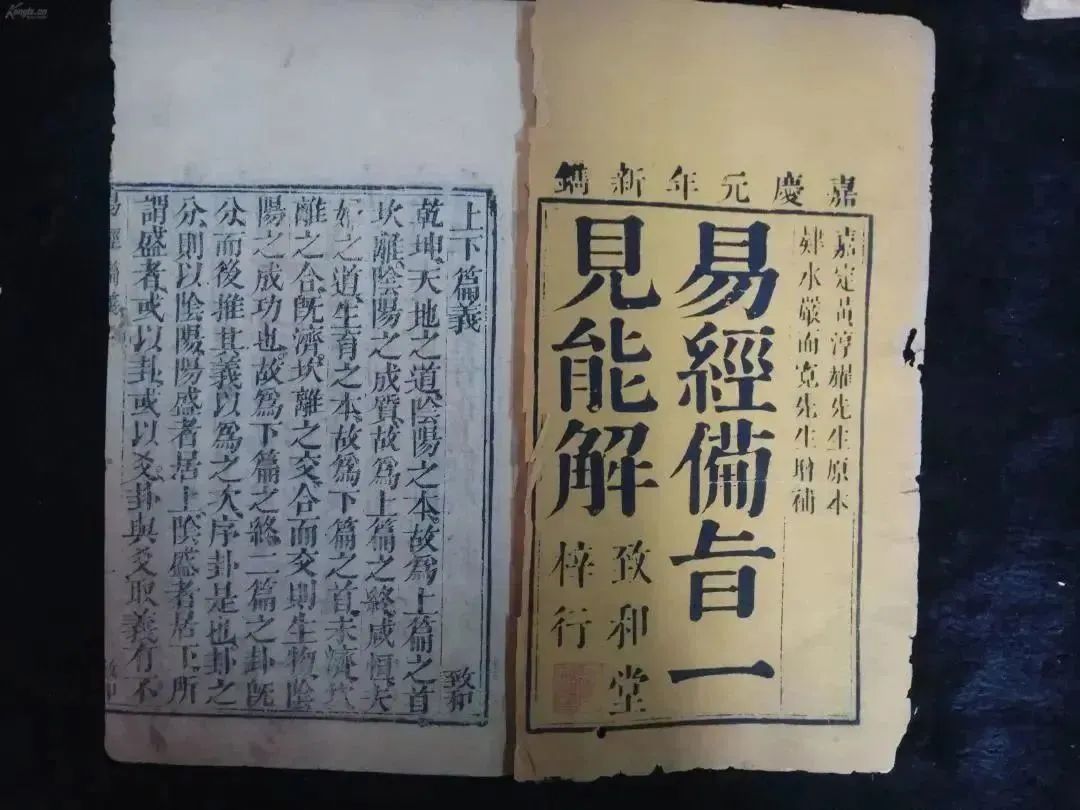 嘉慶元年新鐫
嘉定黃淳耀先生原本
水嚴而寬先生增補
易經備旨一
見能解
致和堂
梓行
上下篇義
致和
乾坤、天地之道、陰陽之本、故爲上篇之首
坎離、陰陽之成質、故爲上篇之終、咸恒夫
婦之道、生育之本、故爲下篇之首、未濟坎
離之合、旣濟、坎離之交、合而交則生物、陰
陽之成功也、故爲下篇之終、二篇之卦旣
分、而後推其義以爲之次、序卦是也、卦之
分、則以陰陽、陽盛者居上、陰盛者居下、所
謂盛者、或以卦、或以爻、卦與爻取義有不